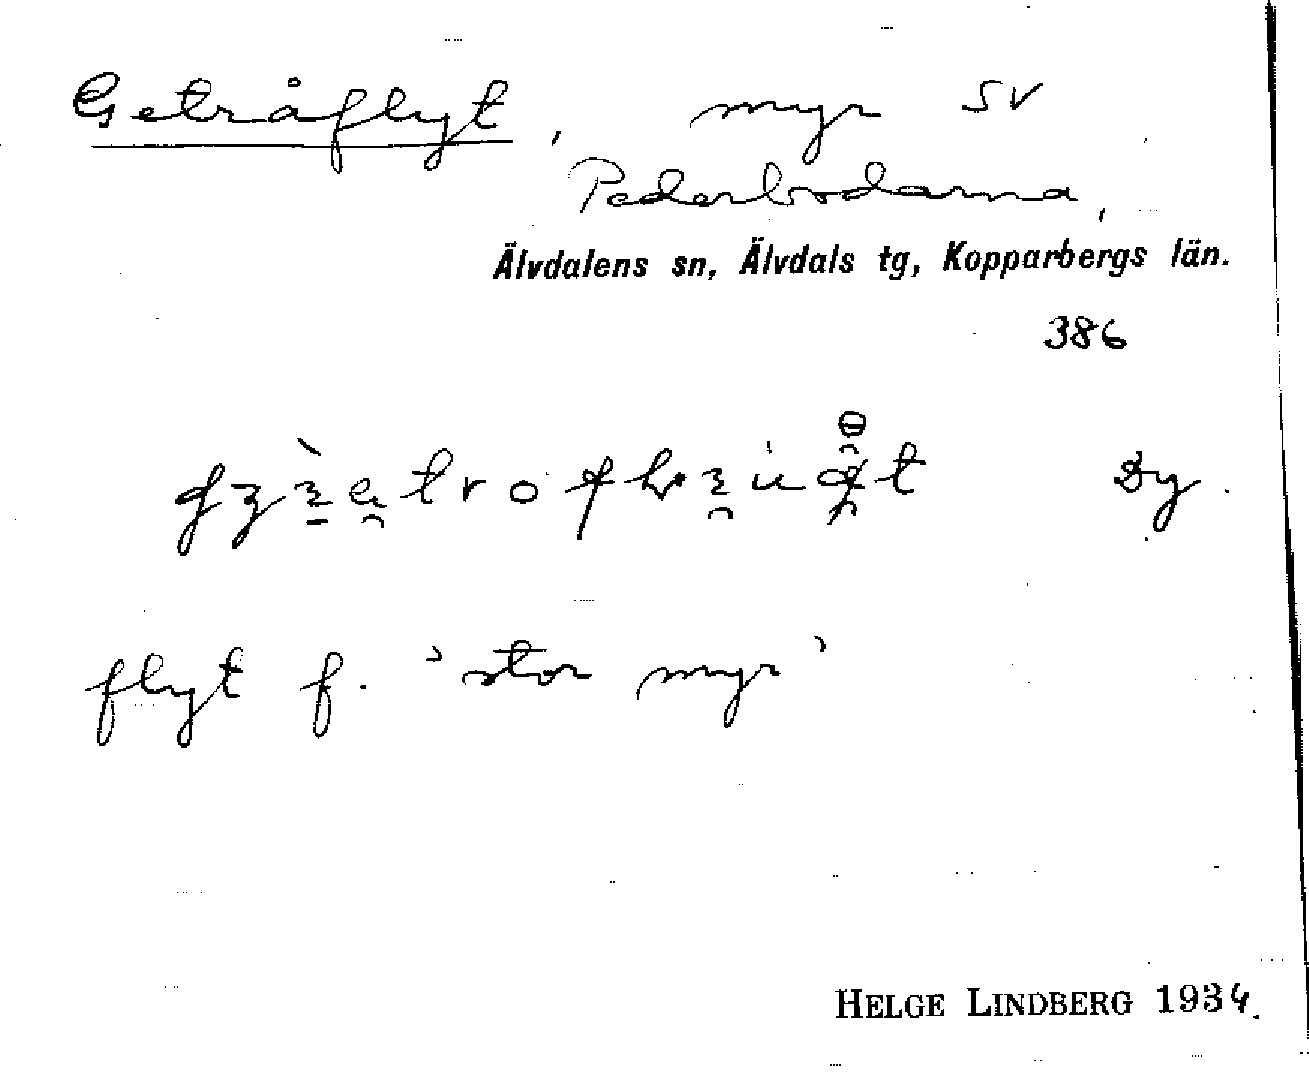 Getråflyt, myr SV
Pederbodarna,
Älvdalens sn, Älvdals tg, Kopparbergs län.
386
Dy.
flyt f. 'stor myr'
HELGE LINDBERG 1934.